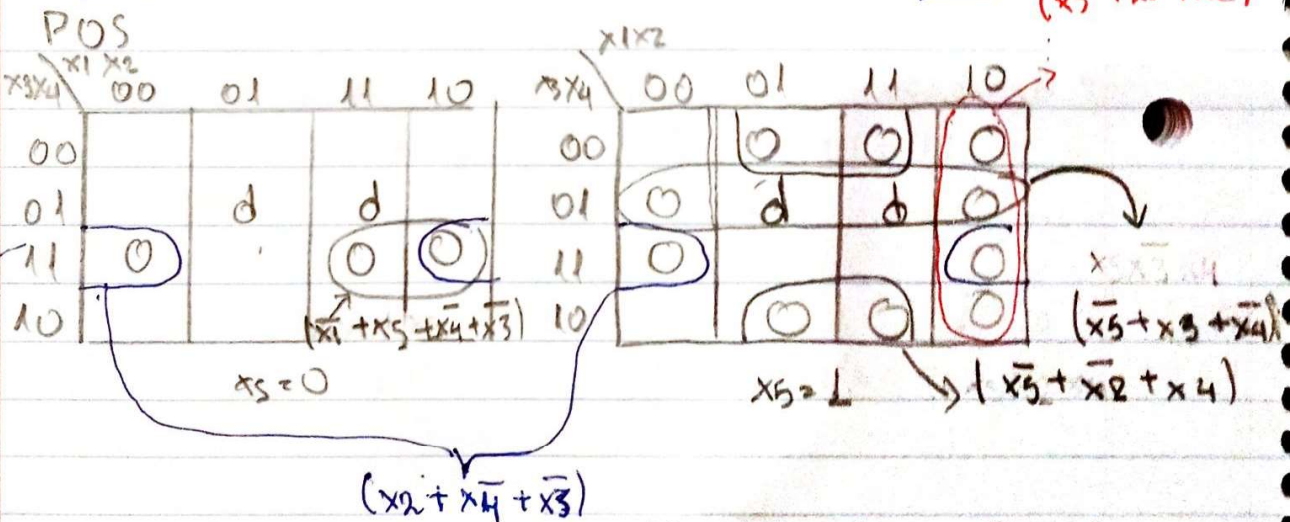 POS
x1 x2
x3x4 00 01 11 10
00
01 d d
11 0 0 0
10
(x̄1 + x5 + x̄4 + x̄3)
x5 = 0
x1x2
x3x4 00 01 11 10
00 0 0 0
01 0 d d 0
11 0 0
10 0 0 0
x5 = 1
(x̄5 + x3 + x̄4)
(x̄5 + x̄2 + x4)
(x2 + x̄4 + x̄3)